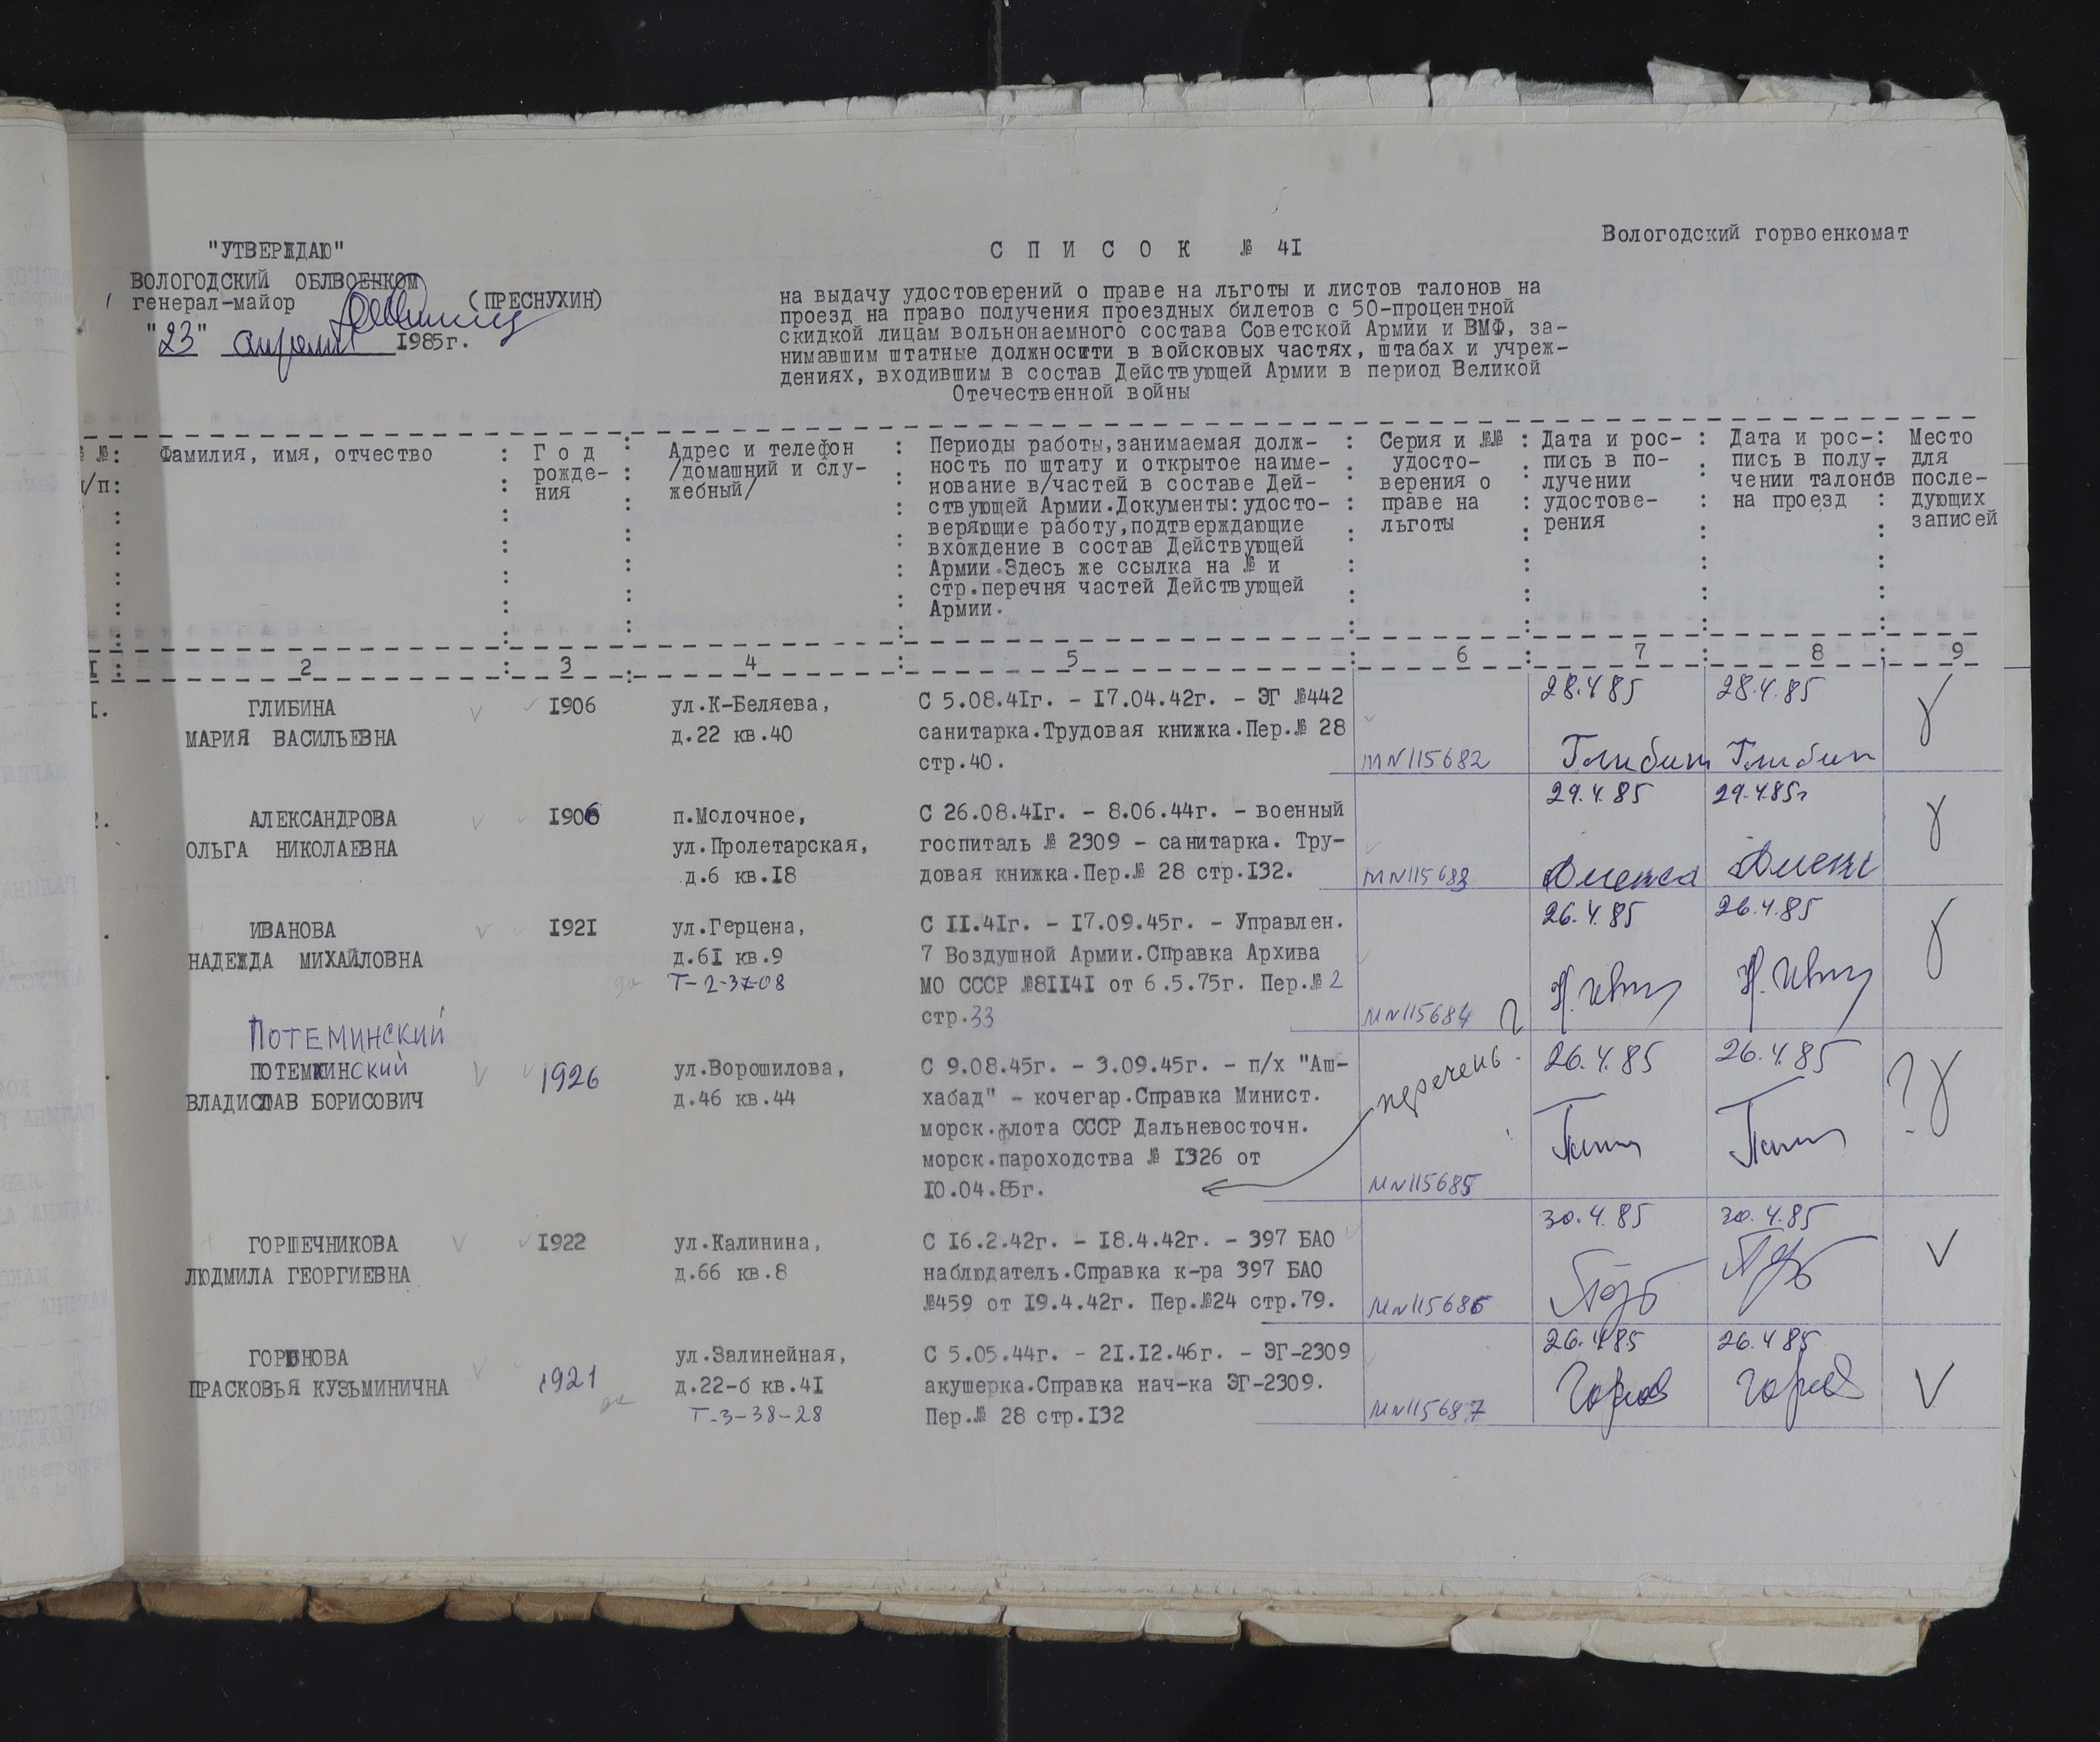 "УТВЕРЖДАЮ"
ВОЛОГОДСКИЙ ОБЛВОЕНКОМ
генерал-майор (ПРЕСНУХИН)
"23" апреля 1985г.
С П И С О К № 4I
Вологодский горвоенкомат
на выдачу удостоверений о праве на льготы и листов талонов на
проезд на право получения проездных билетов с 50-процентной
скидкой лицам вольнонаемного состава Советской Армии и ВМФ, за-
нимавшим штатные должности в войсковых частях, штабах и учреж-
дениях, входившим в состав Действующей Армии в период Великой
Отечественной войны
№:
п/п:
Фамилия, имя, отчество
Г о д
рожде-
ния
Адрес и телефон
/домашний и слу-
жебный/
Периоды работы,занимаемая долж-
ность по штату и открытое наиме-
нование в/частей в составе Дей-
ствующей Армии.Документы:удосто-
веряющие работу,подтверждающие
вхождение в состав Действующей
Армии.Здесь же ссылка на № и
стр.перечня частей Действующей
Армии.
Серия и №№
удосто-
верения о
праве на
льготы
Дата и рос-
пись в по-
лучении
удостове-
рения
Дата и рос-
пись в полу-
чении талонов
на проезд
Место
для
после-
дующих
записей
I : 2 : 3 : 4 : 5 : 6 : 7 : 8 : 9
I.
ГЛИБИНА
МАРИЯ ВАСИЛЬЕВНА
I906
ул.К-Беляева,
д.22 кв.40
С 5.08.4Iг. - I7.04.42г. - ЭГ №442
санитарка.Трудовая книжка.Пер.№ 28
стр.40.
МN115682
28.4.85
Глибин
28.4.85
Глибин
2.
АЛЕКСАНДРОВА
ОЛЬГА НИКОЛАЕВНА
I906
п.Молочное,
ул.Пролетарская,
д.6 кв.I8
С 26.08.4Iг. - 8.06.44г. - военный
госпиталь № 2309 - санитарка. Тру-
довая книжка.Пер.№ 28 стр.I32.
МN115683
29.4.85
29.4.85г
ИВАНОВА
НАДЕЖДА МИХАЙЛОВНА
I92I
ул.Герцена,
д.6I кв.9
Т-2-37-08
С II.4Iг. - I7.09.45г. - Управлен.
7 Воздушной Армии.Справка Архива
МО СССР №8II4I от 6.5.75г. Пер.№ 2
стр.33
МN115684
26.4.85
26.4.85
ПОТЕМИНСКИЙ
ПОТЕМИНский
ВЛАДИСЛАВ БОРИСОВИЧ
1926
ул.Ворошилова,
д.46 кв.44
С 9.08.45г. - 3.09.45г. - п/х "Аш-
хабад" - кочегар.Справка Минист.
морск.флота СССР Дальневосточн.
морск.пароходства № I326 от
I0.04.85г.
перечень?
МN115685
26.4.85
26.4.85
?
ГОРШЕЧНИКОВА
ЛЮДМИЛА ГЕОРГИЕВНА
I922
ул.Калинина,
д.66 кв.8
С I6.2.42г. - I8.4.42г. - 397 БАО
наблюдатель.Справка к-ра 397 БАО
№459 от I9.4.42г. Пер.№24 стр.79.
МN115686
30.4.85
30.4.85
ГОРЮНОВА
ПРАСКОВЬЯ КУЗЬМИНИЧНА
1921
ул.Залинейная,
д.22-б кв.4I
Т-3-38-28
С 5.05.44г. - 2I.I2.46г. - ЭГ-2309
акушерка.Справка нач-ка ЭГ-2309.
Пер.№ 28 стр.I32
МN115687
26.4.85
26.4.85